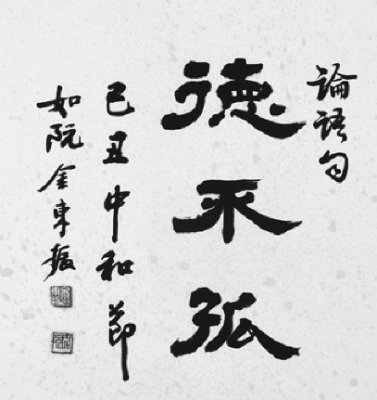 論語句
德不孤
己丑中和節
如阮金東振